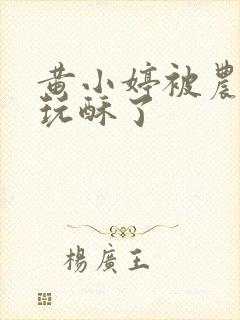 黄小婷被農
玩酥了
楊廣王